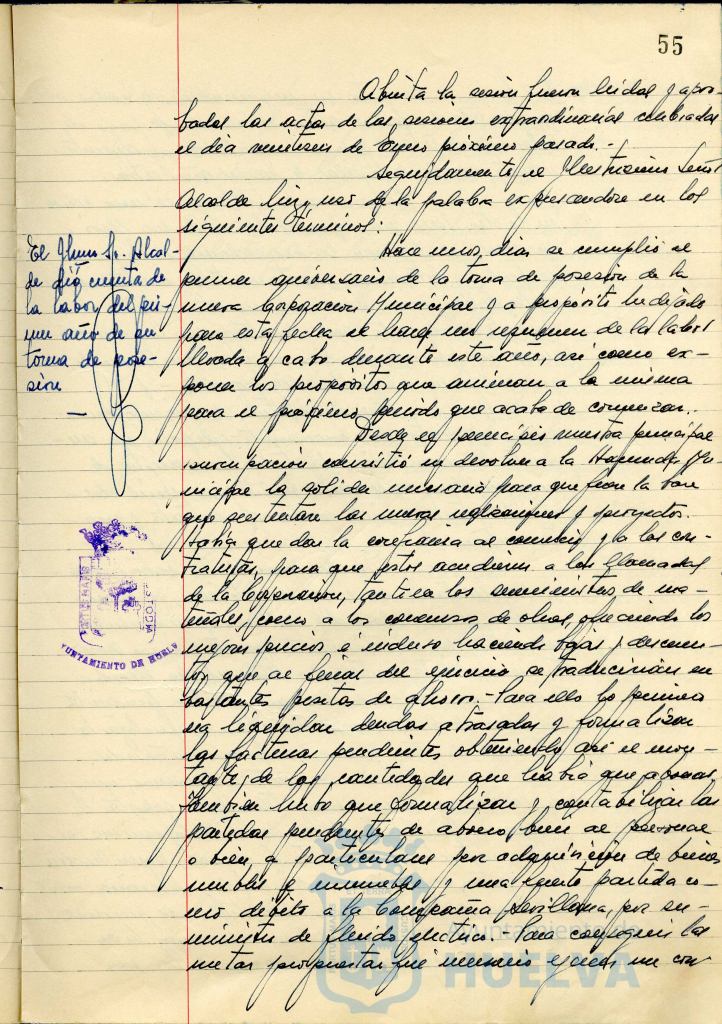 55
Abierta la sesión fueron leidas y apro-
badas las actas de las sesiones extraordinarias celebradas
el día veintiseis de Enero próximo pasado.-
Seguidamente el Ilustrísimo Señor
Alcalde hizo uso de la palabra expresandose en los
siguientes términos:
El Ilmo Sr. Alcal-
de dió cuenta de
la labor del pri-
mer año de su
toma de pose-
sión
Hace unos dias se cumplió el
primer aniversario de la toma de posesión de la
nueva Corporación Municipal y a propósito he dejado
para esta fecha se haga un resumen de la labor
llevada a cabo durante este año, así como ex-
poner los propósitos que animan a la misma
para el próximo periodo que acaba de comenzar.
Desde el principio nuestra principal
preocupación consistió en devolver a la Hacienda Mu-
nicipal la solidez necesaria para que fuera la base
que sustentare las nuevas realizaciones y proyectos.
Había que dar la confianza al comercio y a los con-
tratistas, para que estos acudieran a las llamadas
de la Corporación, tanto a los suministros de ma-
teriales, como a los concursos de obras, ofreciendo los
mejores precios é incluso haciendo bajas y descuen-
tos que al final del ejercicio se traducirían en
bastantes pesetas de ahorro.- Para ello lo primero
era liquidar deudas atrasadas y formalizar
las facturas pendientes obteniendo así el mon-
tante de las cantidades que había que abonar.
También hubo que formalizar y contabilizar las
partidas pendientes de abono bien al personal
o bien a particulares por adquisición de bienes
muebles é inmuebles y una fuerte partida co-
mo débito a la Compañia Sevillana, por su-
ministro de fluido eléctrico.- Para conseguir las
metas propuestas fué necesario ejercer un con-
AYUNTAMIENTO DE HUELVA
HUELVA